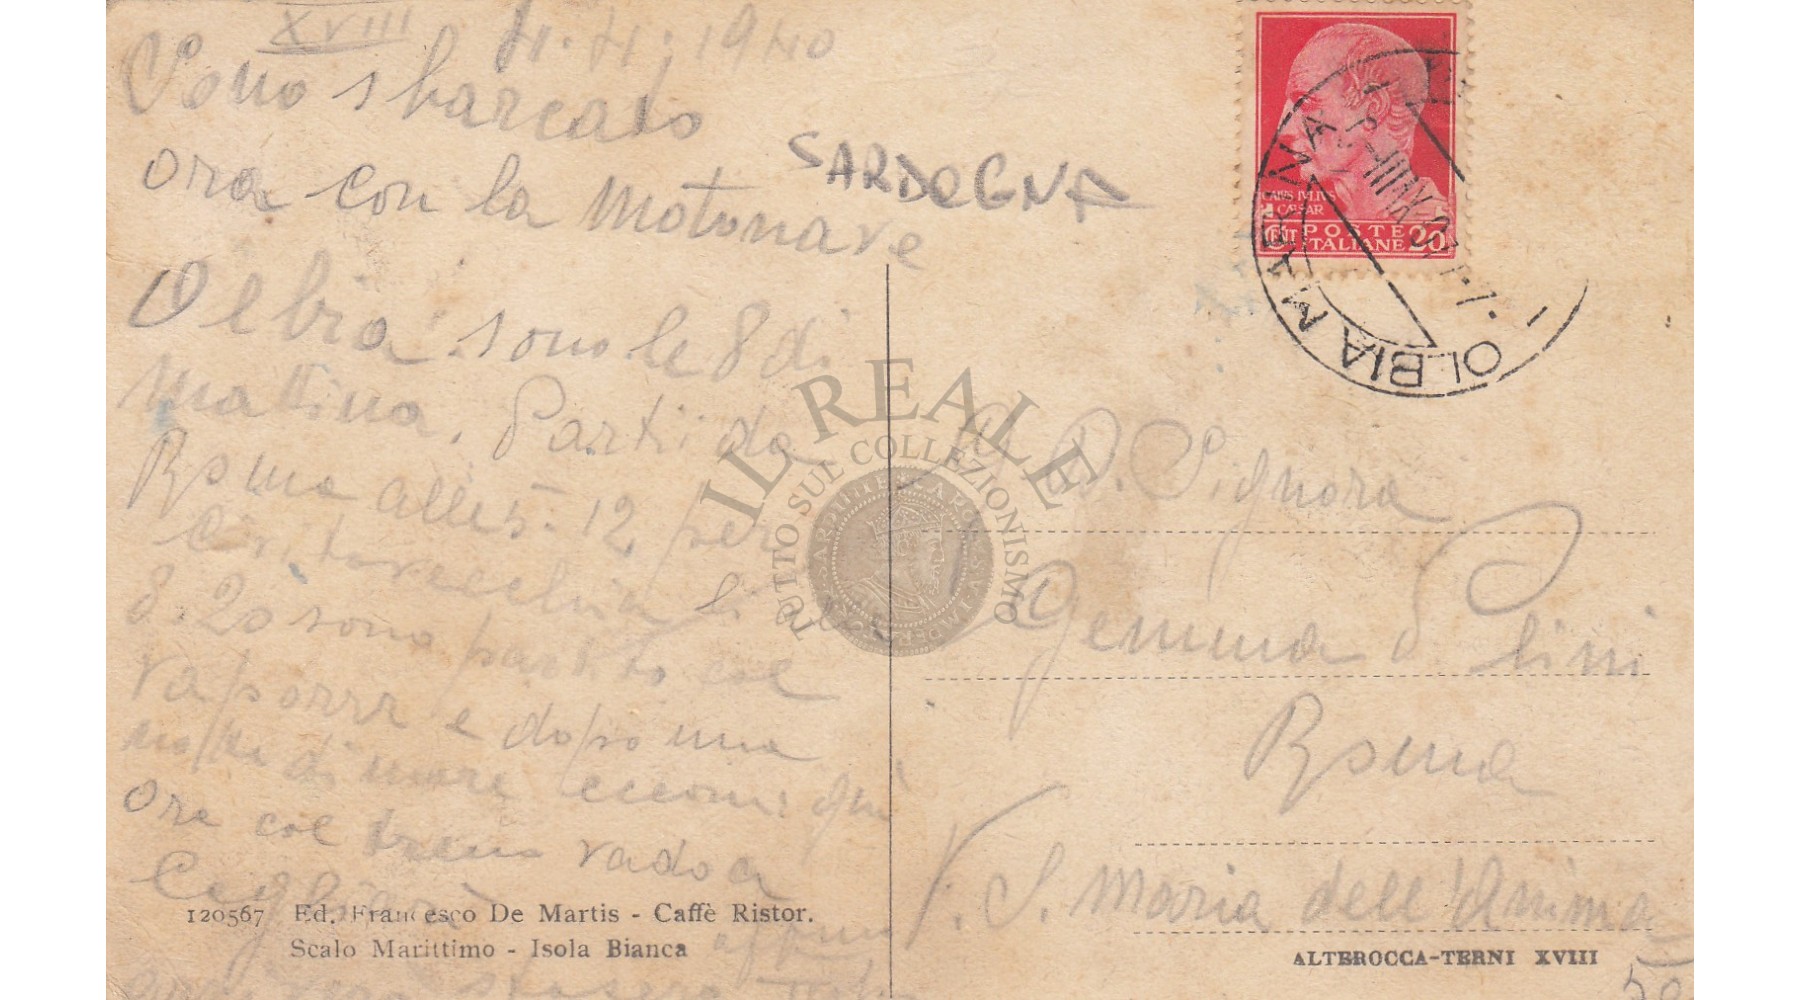 XVIII 4.4.1940
Sono sbarcato
ora con la Motonave
SARDEGNA
Olbia. sono le 8 di
mattina. Partii da
Roma alle 5.12 per
Civitavecchia li
8.20 sono partito col
e dopo una
notte di mare eccomi qui
ora col treno vado a
Cagliari
120567 Ed. Francesco De Martis - Caffè Ristor.
Scalo Marittimo - Isola Bianca
stasera
CAIVS IVLIVS
CAESAR
CENT. POSTE
ITALIANE 20
OLBIA MARINA
IL REALE
TUTTO SUL COLLEZIONISMO
Signora
Gemma Pini
Roma
V. S. Maria dell'Anima
ALTEROCCA-TERNI XVIII